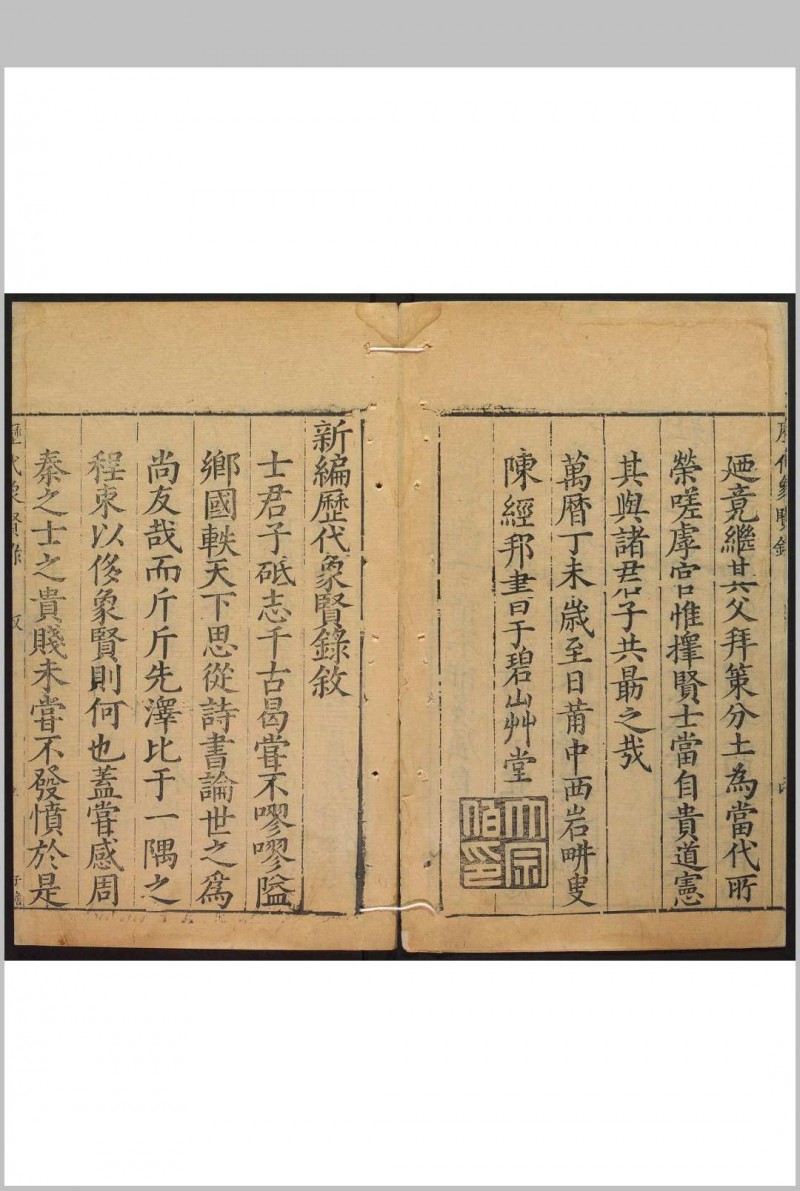 廼竟繼其父拜策分土為當代所
榮嗟虖官惟擇賢士當自貴道憲
其與諸君子共朂之哉
萬曆丁未歲至日莆中西岩畊叟
陳經邦書于碧山艸堂
新編歷代象賢錄敘
士君子砥志千古曷嘗不嘐嘐隘
鄉國軼天下思從詩書論世之爲
尚友哉而斤斤先澤比于一隅之
程束以侈象賢則何也蓋嘗感周
秦之士之貴賤未嘗不發憤於是
歷代象賢錄